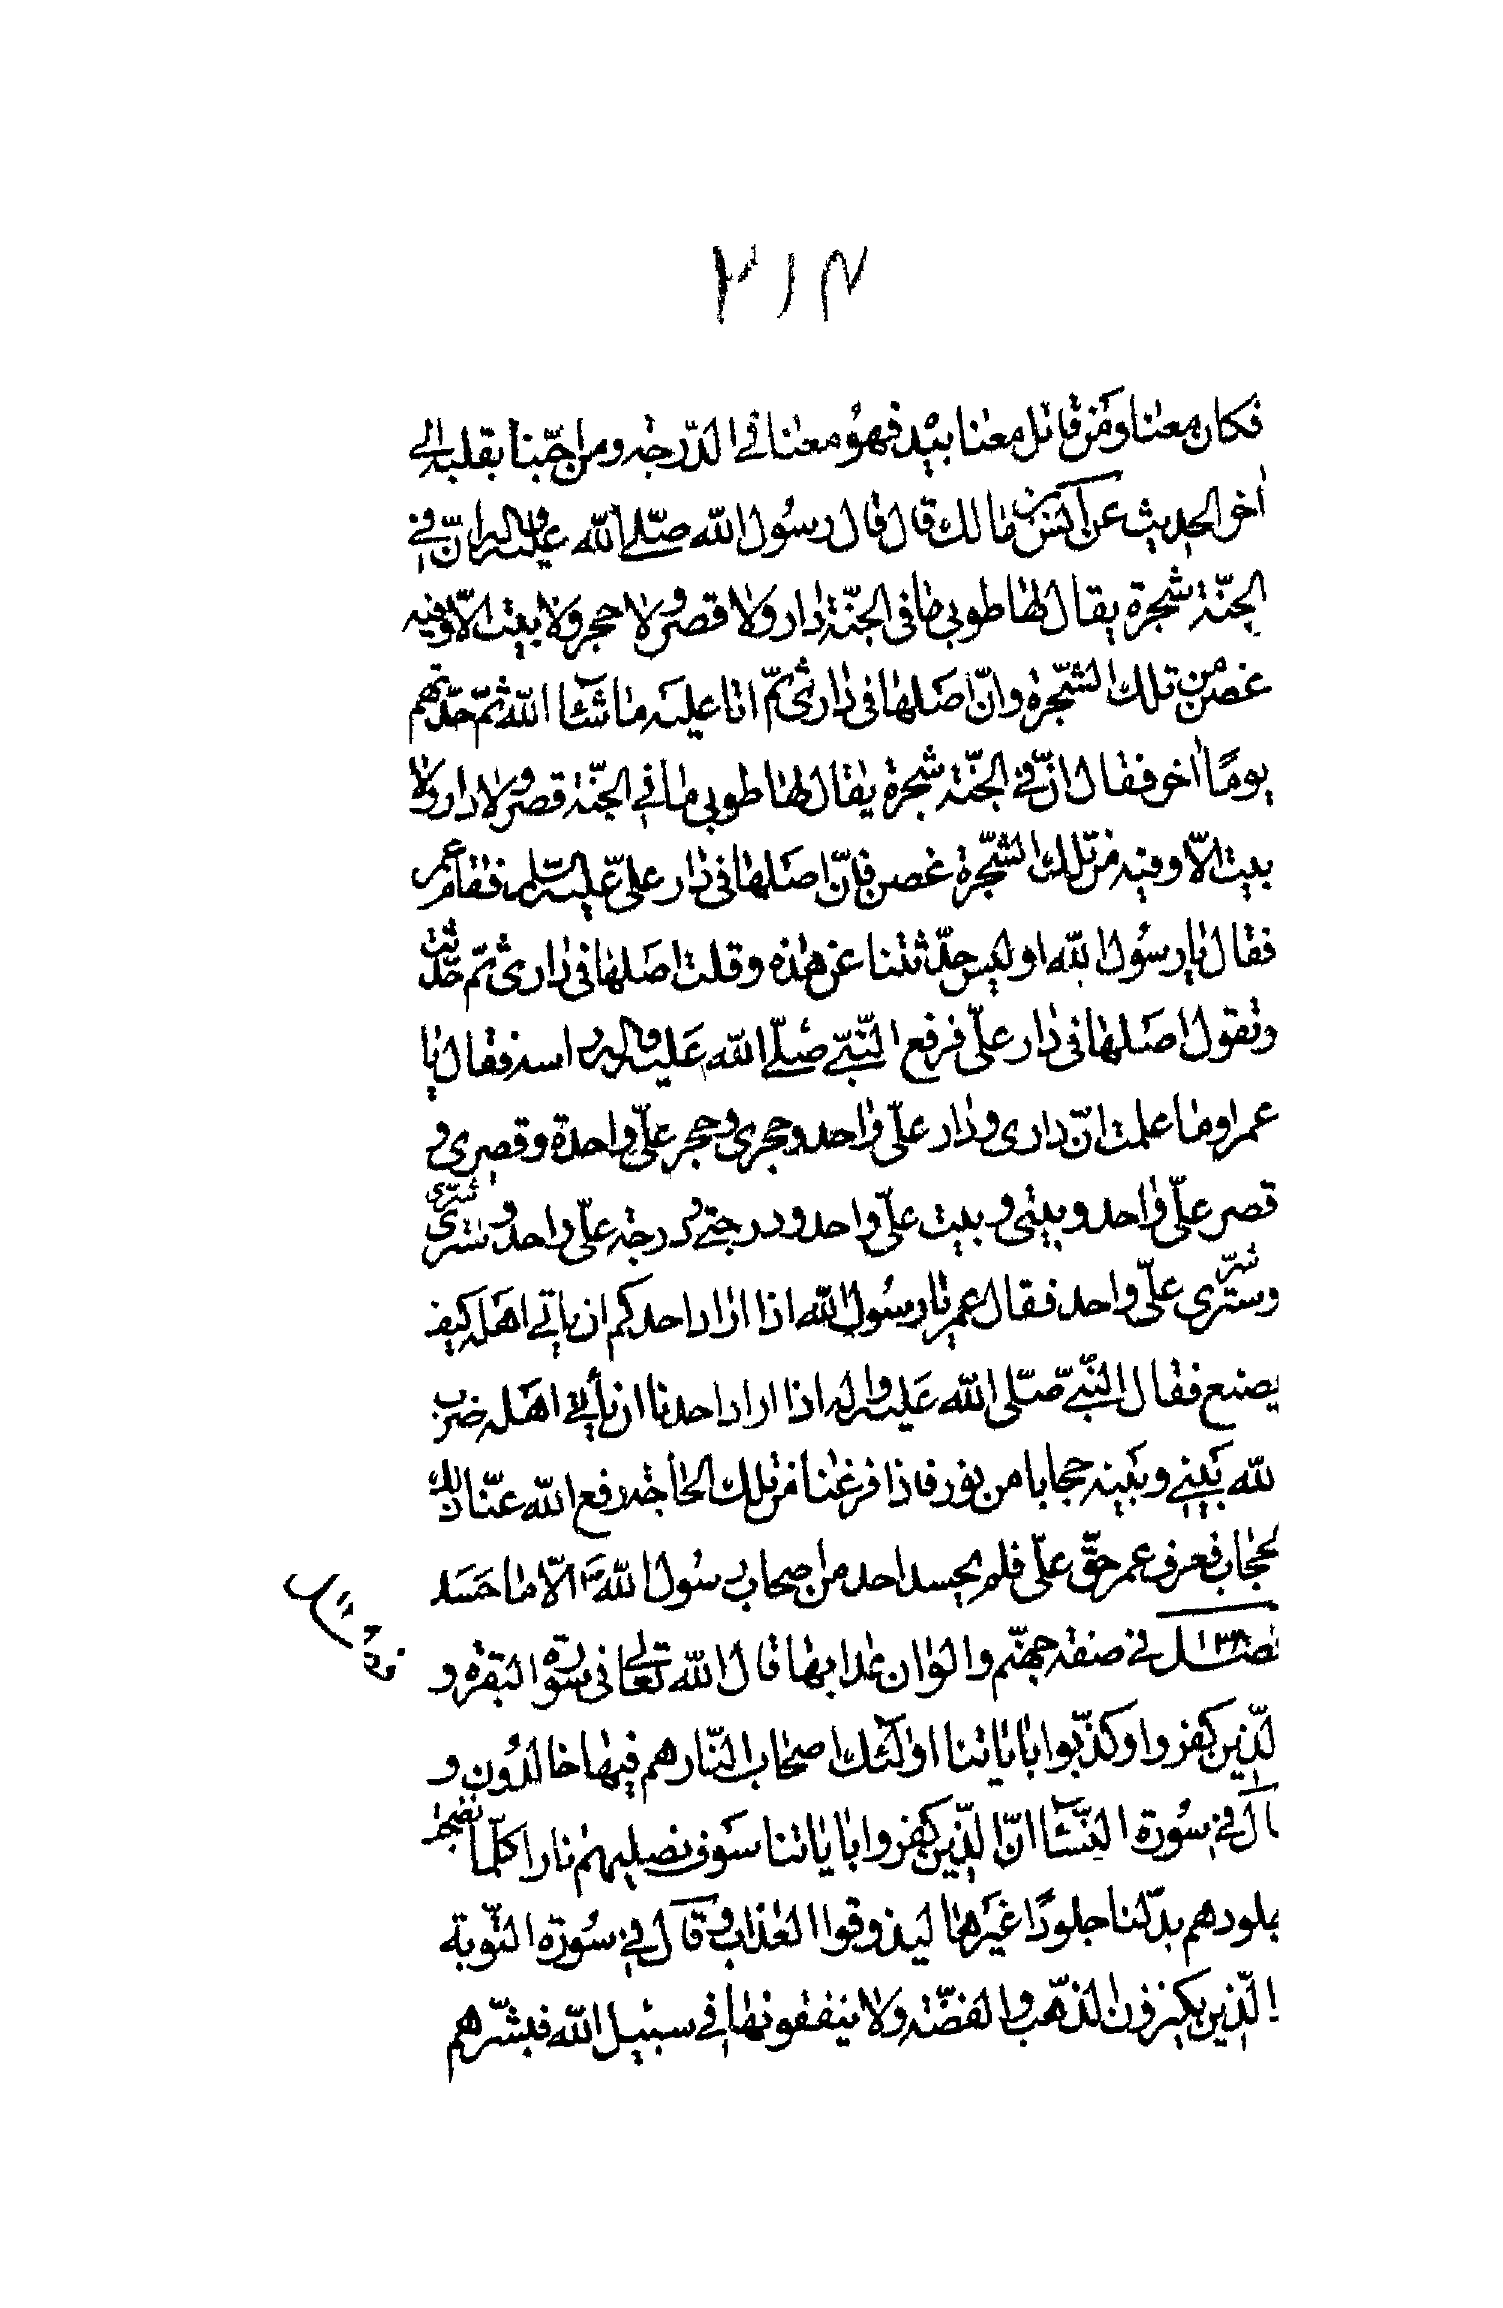 ٢١٣
فكان معنا ومن قاتل معنا بيده فهو معنا فی الدّرجه ومن احبّنا بقلبه الی
اخر الحديث عن انس بن مالك قال قال رسول الله صلّی الله عليه واله انّ فی
الجنّة شجرة يقال لها طوبی ما فی الجنّة دار ولا قصر ولا حجر ولا بيت الّا وفيه
غصن من تلك الشّجرة وانّ اصلها فی داری ثمّ اتا عليه ما شآء الله ثمّ حدّثهم
يومًا اخر فقال انّ فی الجنّة شجرة يقال لها طوبی ما فی الجنّة قصر ولا دار ولا
بيت الّا وفيه من تلك الشّجرة غصن فانّ اصلها فی دار علیّ عليه السّلم فقام عمر
فقال يا رسول الله اوليس حدّثتنا عن هذه وقلت اصلها فی داری ثمّ حدّثت
وتقول اصلها فی دار علیّ فرفع النّبیّ صلّی الله عليه واله راسه فقال يا
عمر اوما علمت انّ داری ودار علیّ واحد وحجری وحجر علیّ واحدة وقصری و
قصر علیّ واحد وبيتی وبيت علیّ واحد ودرجتی ودرجة علیّ واحد وستری
وستر علیّ واحد فقال عمر يا رسول الله اذا اراد احدكم ان ياتی اهله كيف
يصنع فقال النّبیّ صلّی الله عليه واله اذا اراد احدنا ان يأتی اهله ضرب
لله بينی وبينه حجابا من نور فاذا فرغنا من تلك الحاجة رفع الله عنّا ذلك
لحجاب فعرف عمر حقّ علیّ فلم يحسد احد من اصحاب رسول الله ص الّا ما حسد
فصل ١٣٨ فی صفة جهنّم والوان عذابها قال الله تعالی فی سورة البقره و
لّذين كفروا وكذّبوا باياتنا اولئك اصحاب النّار هم فيها خالدون و
قال فی سورة النّسآء انّ الّذين كفروا باياتنا سوف نصليهم نارا كلّما نضجت
جلودهم بدّلنا جلودًا غيرها ليذوقوا العذاب وقال فی سورة التّوبة
الّذين يكنزون الذّهب والفضّة ولا ينفقونها فی سبيل الله فبشّرهم